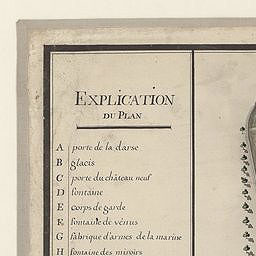 EXPLICATION
DU PLAN
A porte de la darse
B glacis
C porte du château neuf
D fontaine
E corps de garde
F fontaine de vénus
G fabrique d'armes de la marine
H fontaine des miroirs